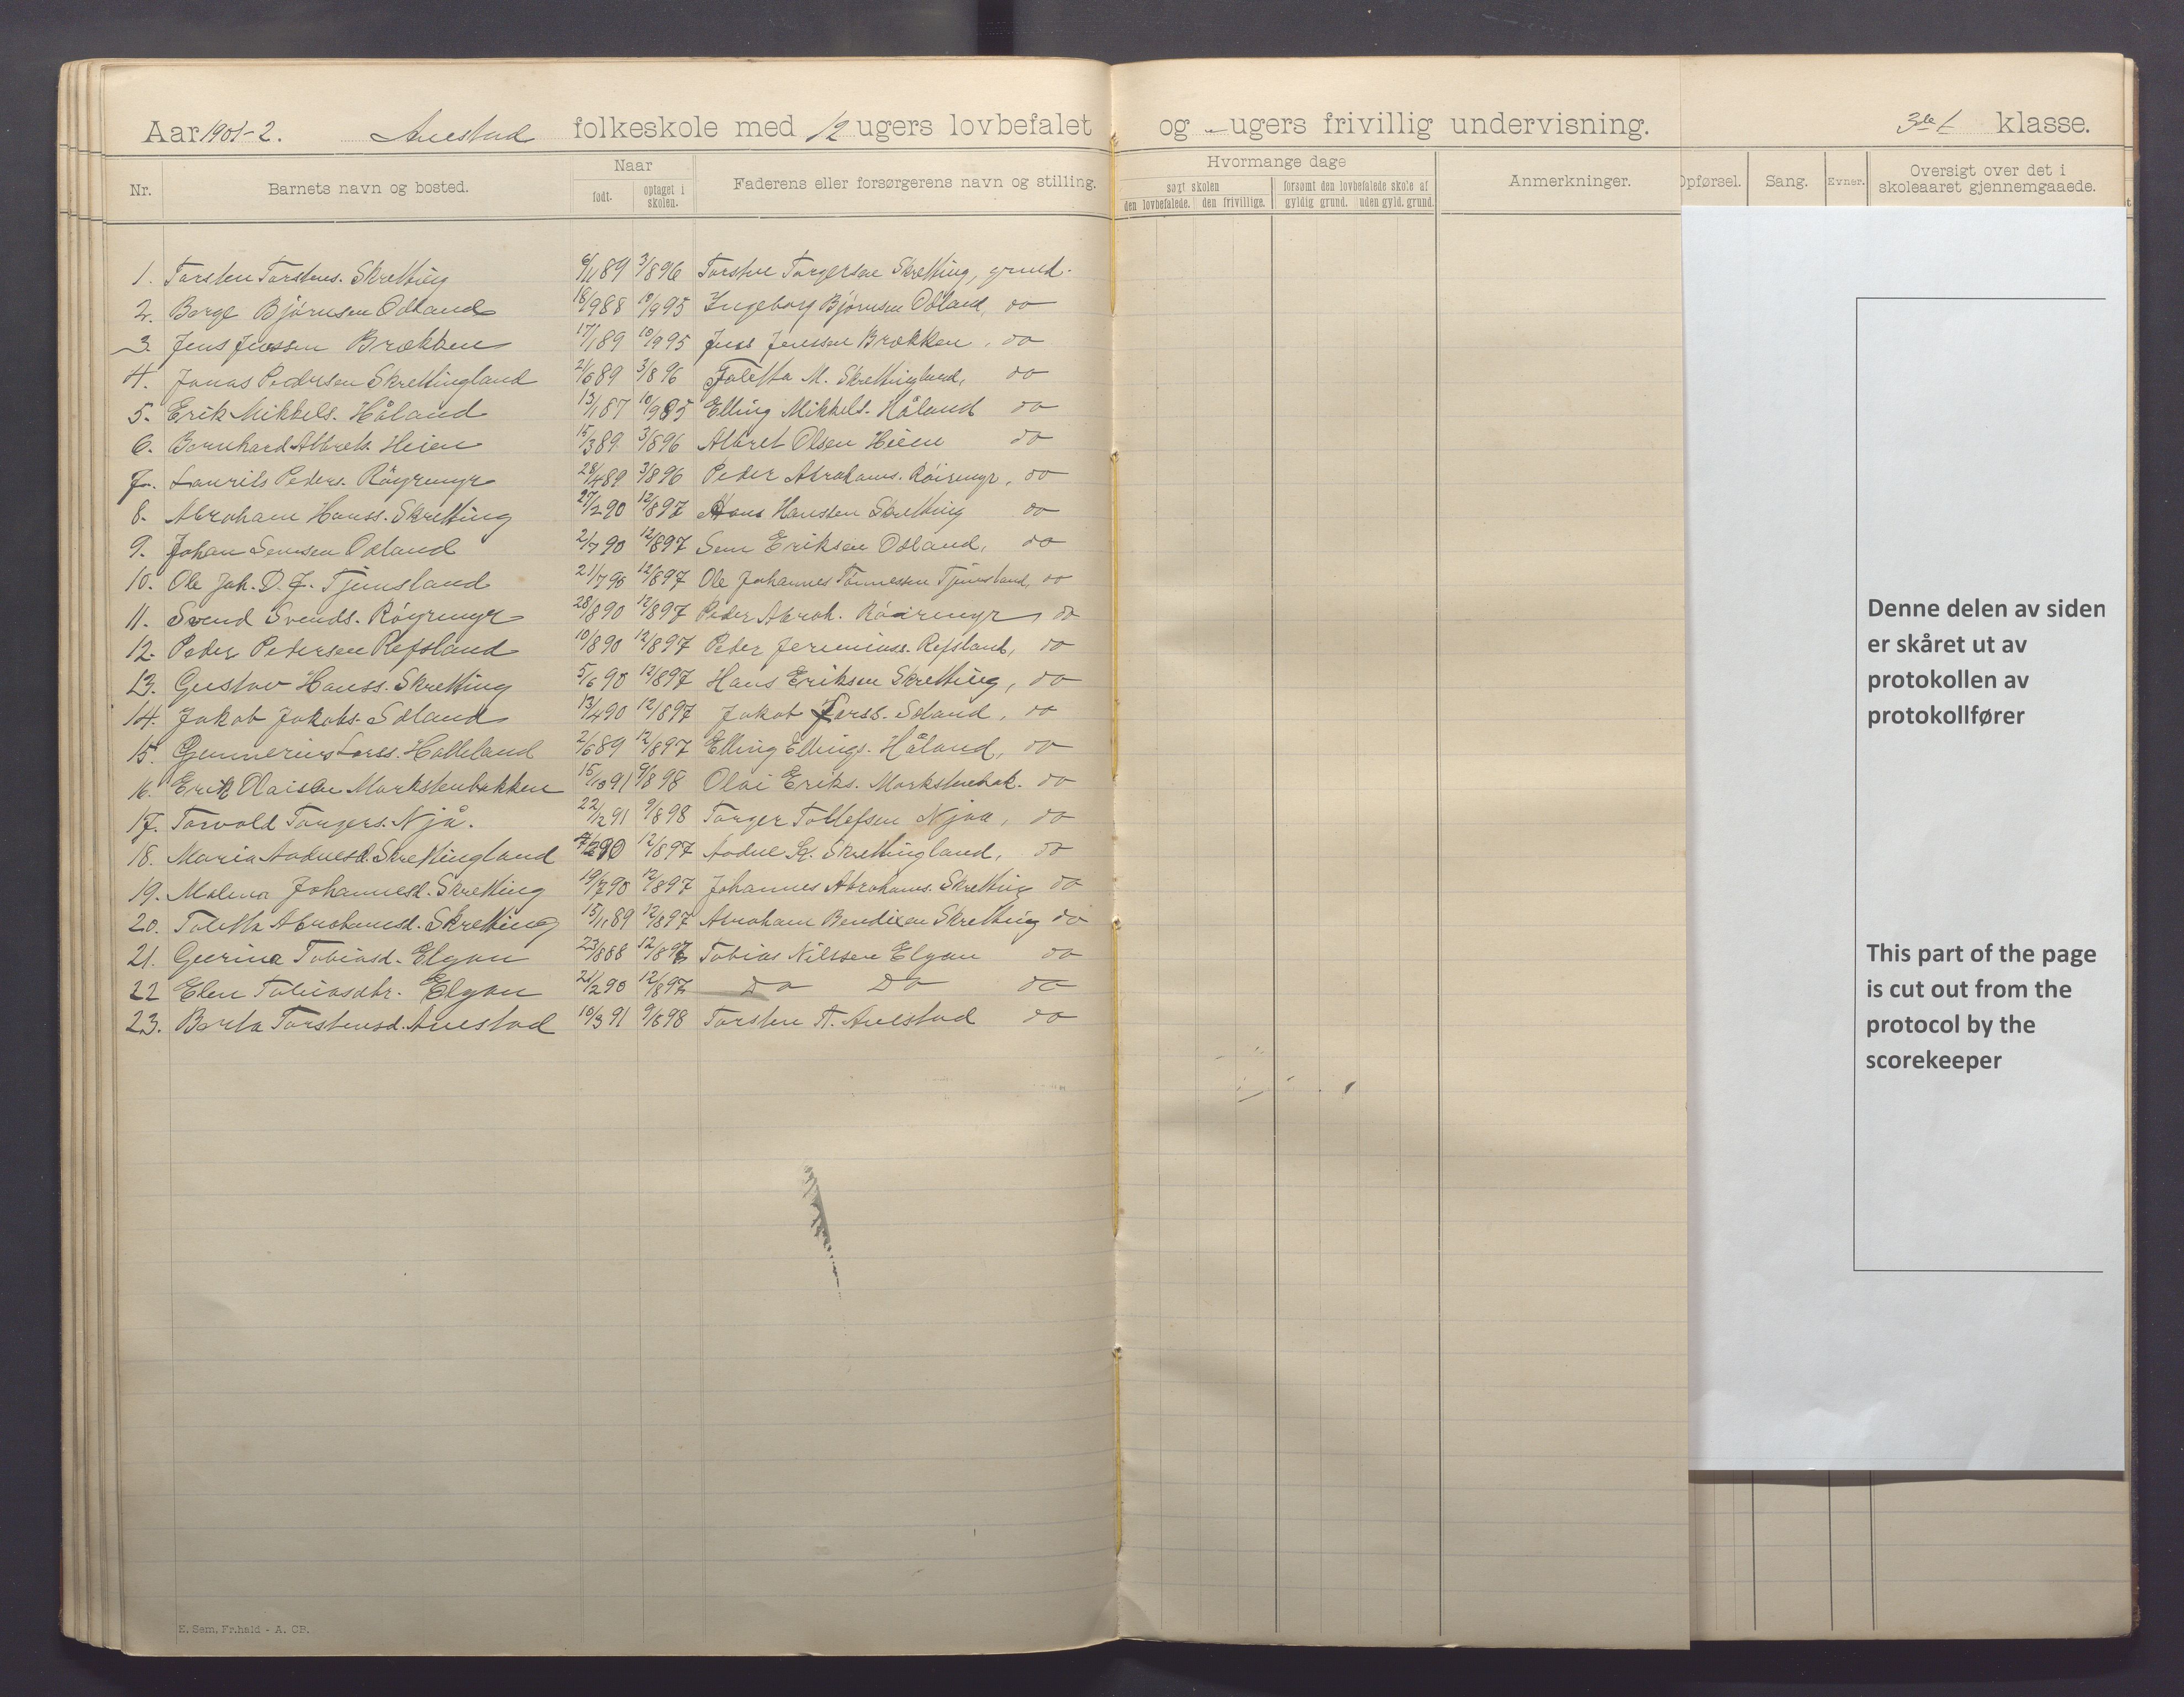 Aar 1901-2. Auestad folkeskole med 12 ugers lovbefalet og - ugers frivillig undervisning. 3de klasse.
Nr. Barnets navn og bosted. Naar født. optaget i skolen. Faderens eller forsørgerens navn og stilling. Hvormange dage søgt skolen den lovbefalede. den frivillige. forsømt den lovbefalede skole af gyldig grund. uden gyld. grund. Anmerkninger. Opførsel. Sang. Evner. Oversigt over det i skoleaaret gjennemgaaede.
1. Torsten Torstens. Skretting 6/11 89 3/8 96 Torsten Torgersen Skretting, grmd.
2. Borge Bjørnsen Odland 18/9 88 10/9 95 Ingeborg Bjørnsen Odland, do
3. Jens Jenssen Brækken 17/1 89 10/9 95 Jens Jenssen Brækken, do
4. Jonas Pedersen Skrettingland 2/6 89 3/8 96 Taletta M. Skrettingland, do
5. Erik Mikkels. Håland 13/1 87 10/9 85 Elling Mikkels. Håland do
6. Bernhard Albrets. Heien 15/3 89 3/8 96 Albret Olsen Heien do
7. Laurits Peders. Röyrmyr 28/4 89 3/8 96 Peder Abrahams. Röirmyr, do
8. Abraham Hanss. Skretting 27/2 90 12/8 97 Hans Hanssen Skretting do
9. Johan Semsen Odland 2/7 90 12/8 97 Sem Eriksen Odland, do
10. Ole Joh. D. J. Tjemsland 21/7 90 12/8 97 Ole Johannes Tönnessen Tjemsland, do
11. Svend Svends. Röyrmyr 28/8 90 12/8 97 Peder Abrah. Röirmyr, do
12. Peder Pedersen Refsland 10/8 90 12/8 97 Peder Jeremiass. Refsland, do
13. Gustav Hanss. Skretting 5/6 90 12/8 97 Hans Eriksen Skretting, do
14. Jakob Jakobs. Odland 13/4 90 12/8 97 Jakob Larss. Odland, do
15. Gunnerius Larss. Holleland 2/6 89 12/8 97 Elling Ellings. Håland, do
16. Erik Olaisen Markstenbakken 15/10 91 9/8 98 Olai Eriks. Markstenbak. do
17. Torvald Torgers. Njå. 22/2 91 9/8 98 Torger Tollefsen Njaa, do
18. Maria Aadnesd. Skrettingland 7/2 90 12/8 97 Aadne Skrettingland, do
19. Malena Johannesd. Skretting 19/7 90 12/8 97 Johannes Abrahams. Skretting do
20. Taletta Abrahamsd. Skretting 15/11 89 12/8 97 Abraham Bendixen Skretting do
21. Gurina Tobiasd. Elgan 23/8 88 12/8 97 Tobias Nilssen Elgan do
22 Elen Tobiasdtr. Elgan 21/2 90 12/8 97 Do Do do
23. Berta Torstensd. Auestad 10/3 91 9/8 98 Torsten T. Auestad do
Denne delen av siden
er skåret ut av
protokollen av
protokollfører
This part of the page
is cut out from the
protocol by the
scorekeeper
E. Sem, Fr.hald - A. CP.